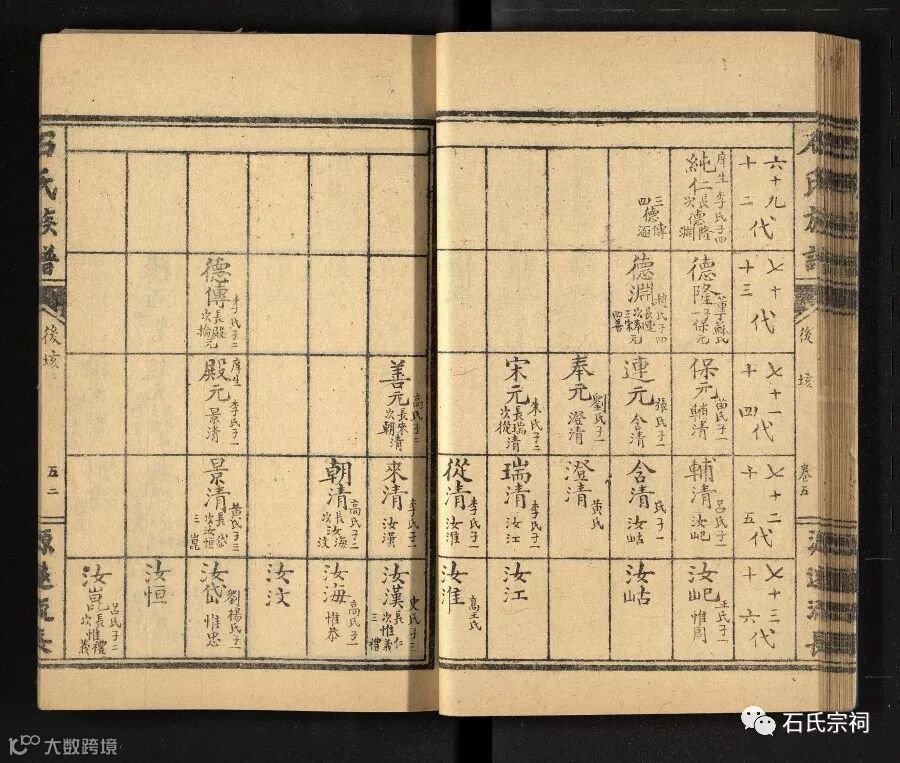 六十九代
十二
庠生 李氏子四
純仁 長德隆
次淵
三德傳
四
七十代
十三
德隆 董蘇氏
子一保元
德淵 趙氏子四
長連
次奉元
三宋
四善
德傳 李氏子二
長殿元
次掄
七十一代
十四
保元 苗氏子一
輔清
連元 張氏子一
含清
奉元 劉氏子一
澄清
宋元 朱氏子二
長瑞清
次從
善元 高氏子二
長來清
次朝
庠生 李氏子一
殿元 景清
七十二代
十五
輔清 呂氏子一
汝屺
含清 氏子一
汝岵
澄清 黄氏
瑞清 李氏子一
汝江
從清 李氏子一
汝淮
來清 李氏子一
汝漢
朝清 高氏子二
長汝海
次汶
景清 黄氏子三
長岱
次汝恒
三崑
七十三代
十六
汝屺 王氏子一
惟周
汝岵
汝江
汝淮 高王氏
汝漢 史氏子三
長仁
次惟義
三禮
汝海 高氏子一
惟恭
汝汶
汝岱 劉楊氏子一
惟忠
汝恒
汝崑 呂氏子二
長惟禮
次義
後垓
卷五
源遠流長
石氏族譜
後垓
五二
源遠流長
石氏宗祠
大数跨境